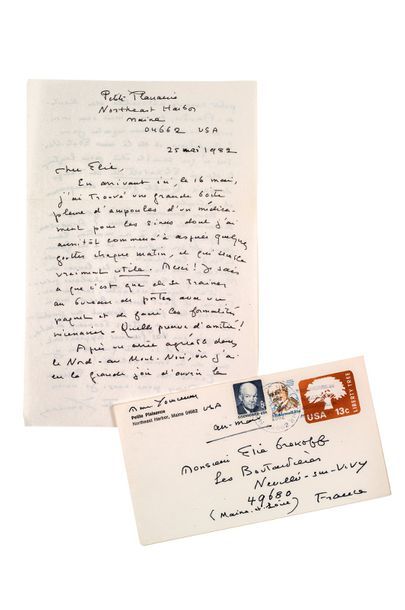 Petite Plaisance
Northeast Harbor
Maine
04662 USA
25 mai 1982
Cher Elie,
En arrivant ici, le 16 mai,
j'ai trouvé une grande boîte
pleine d'ampoules d'un médica-
ment pour les sinus dont j'ai
aussitôt commencé à aspirer quelques
gouttes chaque matin, et qui
vraiment utile. Merci! Je sais
ce que c'est que de se trainer
au bureau de postes avec un
paquet et de faire les formalités
nécessaires. Quelle preuve d'amitié!
Après un séjour agréable dans
le Nord - au Mont-Noir, où j'ai
eu la grande joie d'avoir
Petite Plaisance
Northeast Harbor, Maine 04662 USA
EISENHOWER USA
USA 13c
LIBERTY TREE
air-mail
Monsieur Elie Grekoff
Les Boutardières
Neuillé-sur-Vivy
49680
(Maine-et-Loire) France